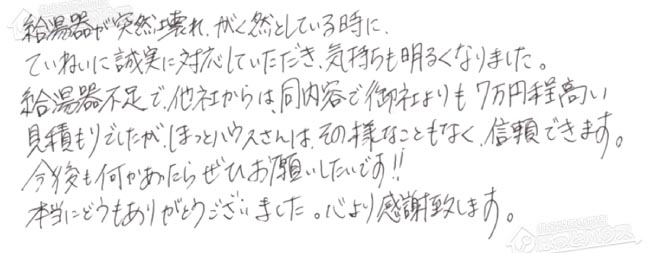 給湯器が突然壊れ、がく然としている時に、
ていねいに誠実に対応していただき、気持ちも明るくなりました。
給湯器不足で、他社からは、同内容で御社よりも7万円程高い
見積もりでしたが、ほっとハウスさんは、その様なこともなく、信頼できます。
今後も何かあったらぜひお願いしたいです!!
本当にどうもありがとうございました。心より感謝致します。
ほっとハウス